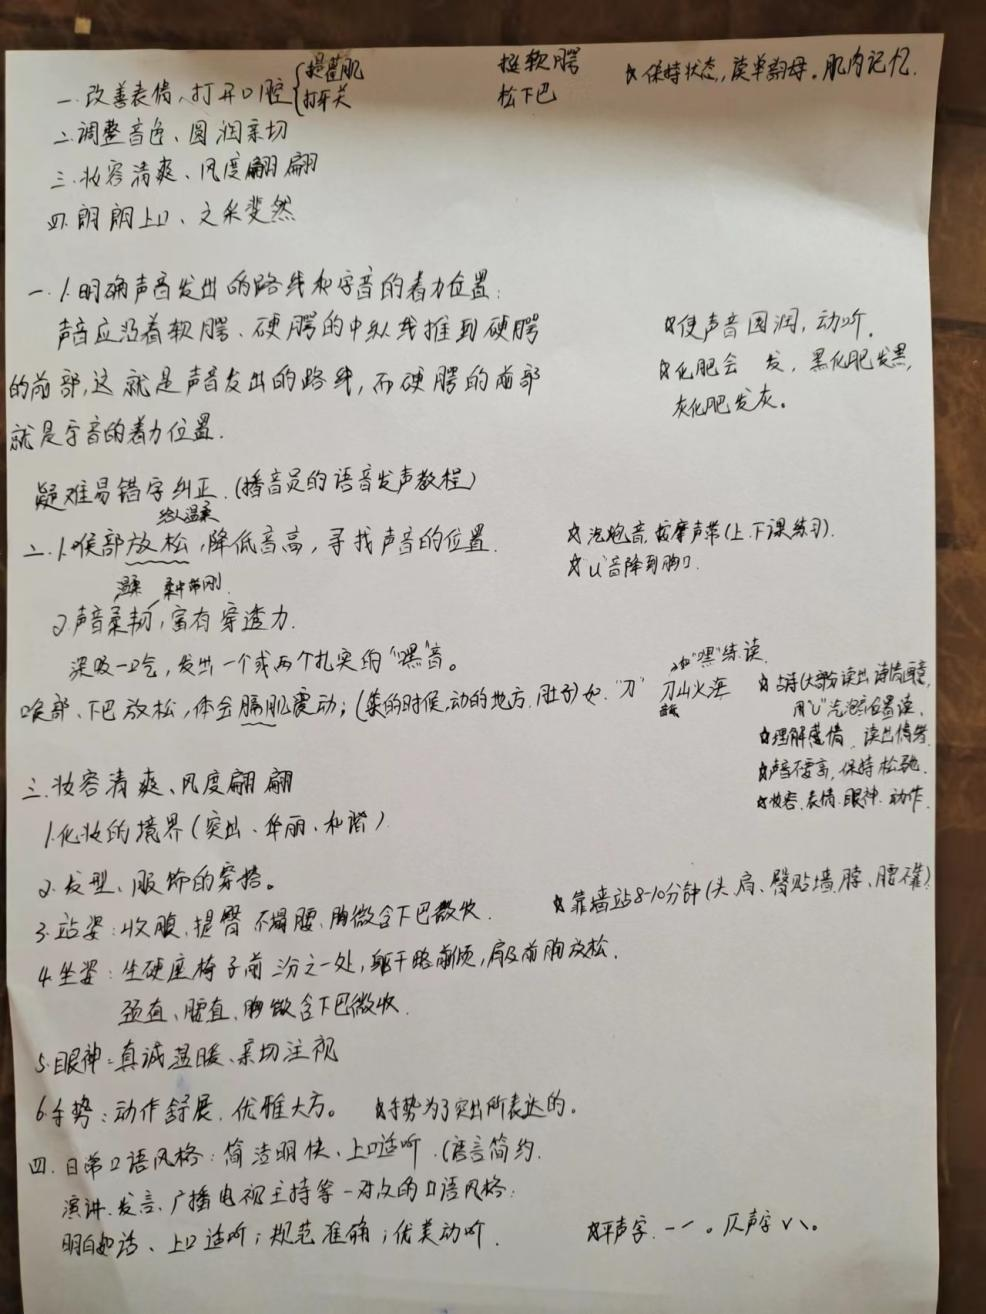 一.改善表情、打开口腔{提笑肌 打牙关 挺软腭 松下巴
☆保持状态,读单韵母。肌肉记忆.
二.调整音色、圆润亲切
三.妆容清爽、风度翩翩
四.朗朗上口、文采斐然
一.1.明确声音发出的路线和字音的着力位置:
声音应沿着软腭、硬腭的中纵线推到硬腭
的前部,这就是声音发出的路线,而硬腭的前部
就是字音的着力位置.
☆使声音圆润,动听.
☆化肥会 发,黑化肥发黑,
灰化肥发灰。
疑难易错字纠正.(播音员的语音发声教程)
给人温柔
二.1.喉部放松,降低音高,寻找声音的位置.
☆泡泡音,按摩声带(上.下课练习).
☆"u"音降到胸口.
温柔 柔中带刚.
2.声音柔韧,富有穿透力.
深吸一口气,发出一个或两个扎实的"嘿"音。
加"嘿"练读.
喉部、下巴放松,体会膈肌震动;(笑的时候,动的地方.肚子)如."刀" 刀山火海
☆古诗(大部分读出诗情画意,
用"u"泡泡音位置读.
☆理解感情.读出情绪.
☆声音不要高,保持松弛.
☆妆容、表情.眼神.动作.
三.妆容清爽、风度翩翩
1.化妆的境界(突出、华丽、和谐)
2.发型、服饰的穿搭。
3.站姿:收腹、提臀 不塌腰、胸微含下巴微收.
☆靠墙站8-10分钟(头、肩、臀贴墙,脖、腰不靠)
4.坐姿:坐硬座椅子前 三分之一处,躯干略前倾,肩及前胸放松.
颈直、腰直、胸微含下巴微收.
5.眼神:真诚温暖、亲切注视
6.手势:动作舒展、优雅大方。 ☆手势为了突出所表达的。
四.日常口语风格:简洁明快、上口适听.(语言简约.
演讲、发言、广播电视主持等一对众的口语风格:
明白如话、上口适听;规范准确;优美动听.
☆平声字.一 ˊ。仄声字ˇˋ。